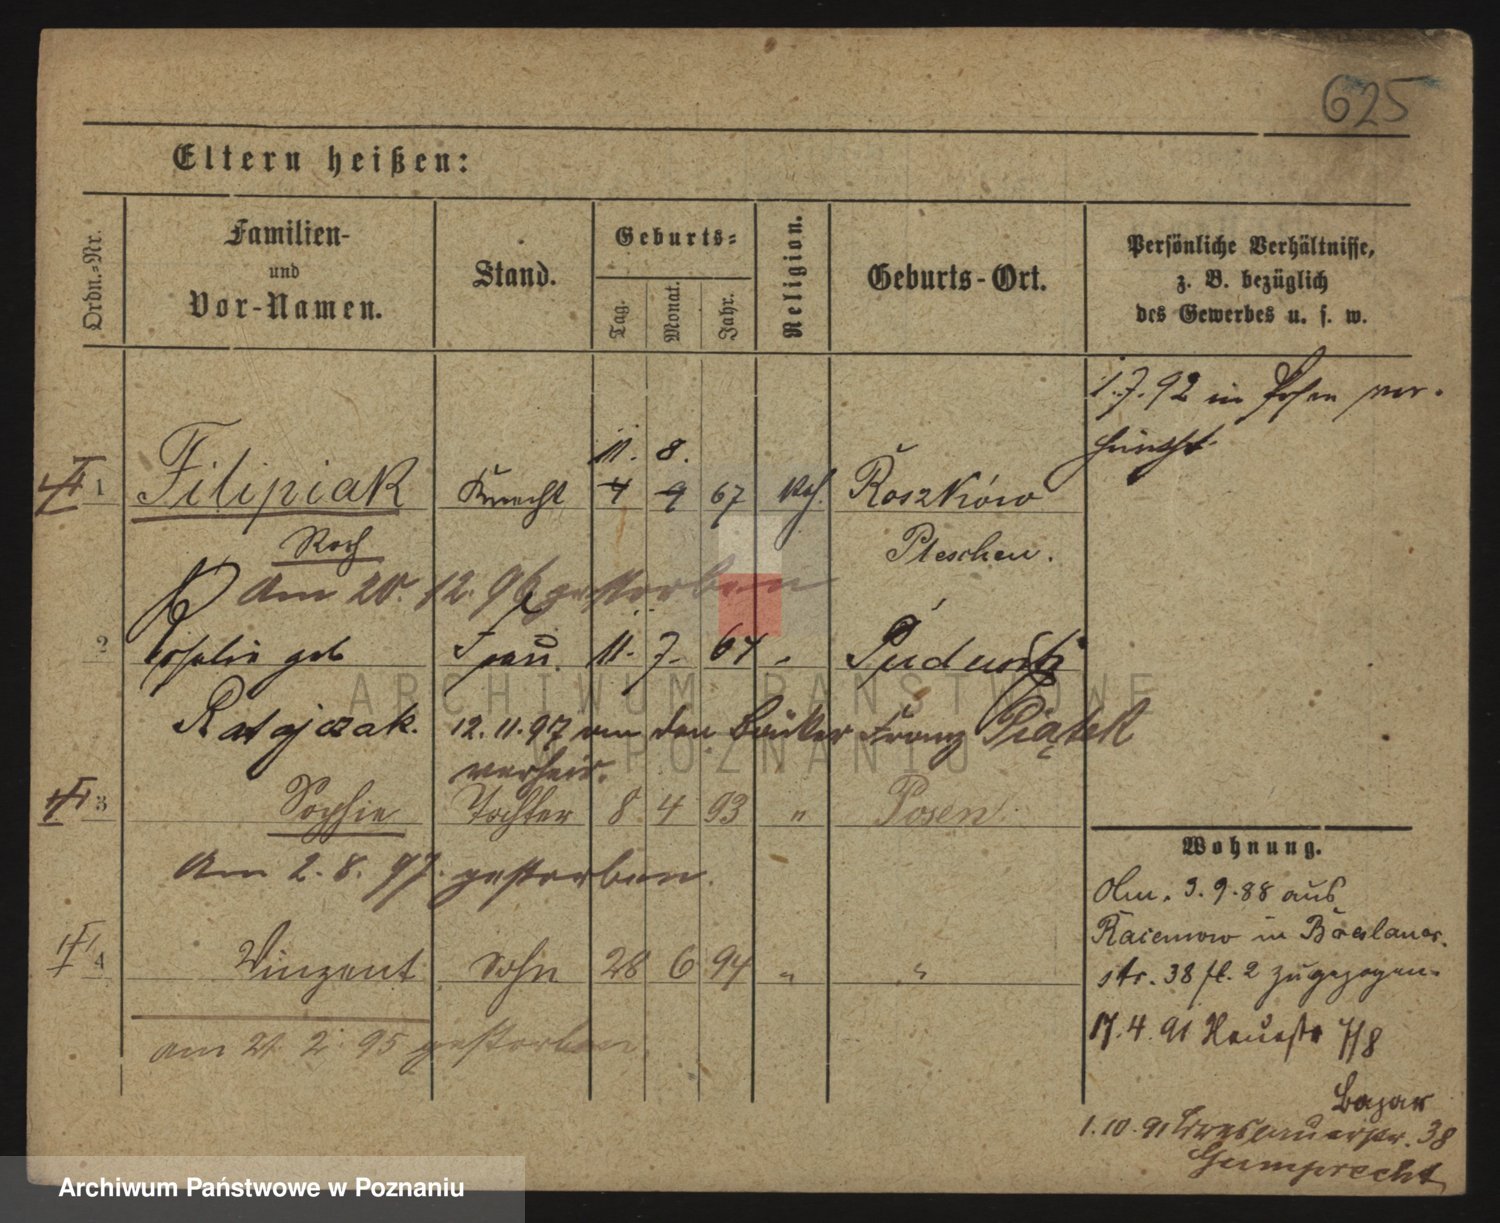 625
Eltern heißen:
Ordn.-Nr.
Familien-
und
Vor-Namen.
Stand.
Geburts-
Tag.
Monat.
Jahr.
Religion.
Geburts-Ort.
Persönliche Verhältnisse,
z. B. bezüglich
des Gewerbes u. s. w.
1.7.92 in Posen ver-
11. 8.
1 Filipiak Knecht 4 9 67 kath. Roszków
Roch Pleschen.
Am 20.12.96 gestorben
2 Rosalie geb Frau 11. 7. 67 " Pudewitz
Ratajczak. 12.11.97 an den Bäcker Franz Piątek
verheir.
3 Sophie Tochter 8 4 93 " Posen
Am 2.8.97. gestorben.
4 Vinzent Sohn 28 6 94 " "
am 21 2 95 gestorben
Wohnung.
Olm. 3.9.88 aus
Racemowo in Breslauer-
str. 38 fl. 2 zugezogen.
17.4.91 Neuestr 7/8
Bazar
1.10.91 Breslauerstr. 38
Gumprecht
ARCHIWUM PAŃSTWOWE
W POZNANIU
Archiwum Państwowe w Poznaniu